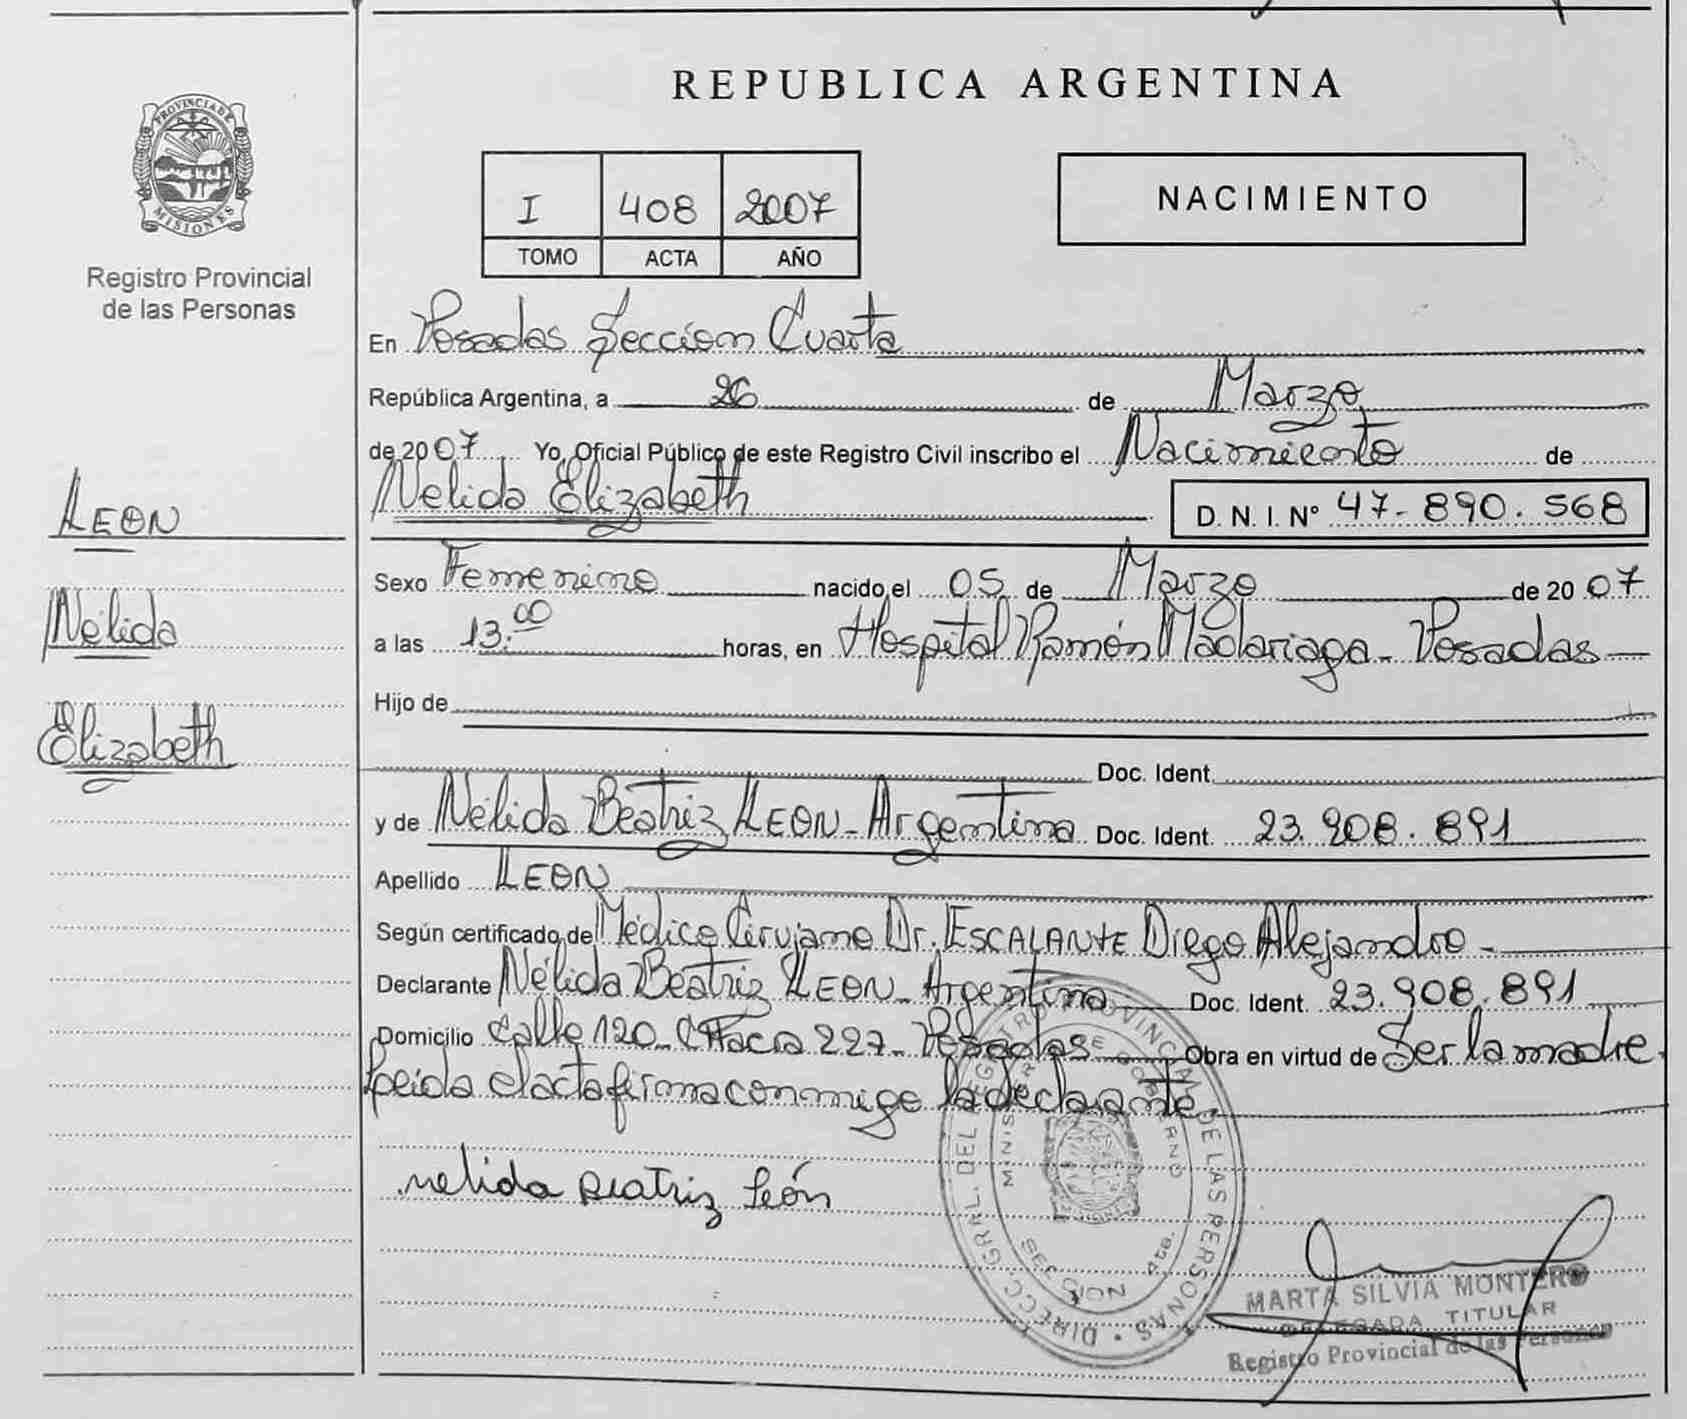 REPUBLICA ARGENTINA
PROVINCIA DE
MISIONES
Registro Provincial
de las Personas
I 408 2007
TOMO ACTA AÑO
NACIMIENTO
En Posadas Sección Cuarta
República Argentina, a 26 de Marzo
de 2007 Yo, Oficial Público de este Registro Civil inscribo el Nacimiento de
Nelida Elizabeth D. N. I. Nº 47-890.568
LEON
Nélida
Elizabeth
Sexo Femenino nacido el 05 de Marzo de 2007
a las 13:00 horas, en Hospital Ramón Madariaga - Posadas
Hijo de
Doc. Ident.
y de Nélida Beatriz LEON - Argentina Doc. Ident. 23.908.891
Apellido LEON
Según certificado de Médico Cirujano Dr. ESCALANTE Diego Alejandro -
Declarante Nélida Beatriz LEON - Argentina Doc. Ident. 23.908.891
Domicilio Calle 120 - Chacra 227 - Posadas Obra en virtud de Ser la madre.
Leida el acta firma conmigo la declarante.
nelida Beatriz león
DIRECC. GRAL. DEL REGISTRO PROVINCIAL DE LAS PERSONAS
SECCION 4ta.
MARTA SILVIA MONTERO
DELEGADA TITULAR
Registro Provincial de las Personas